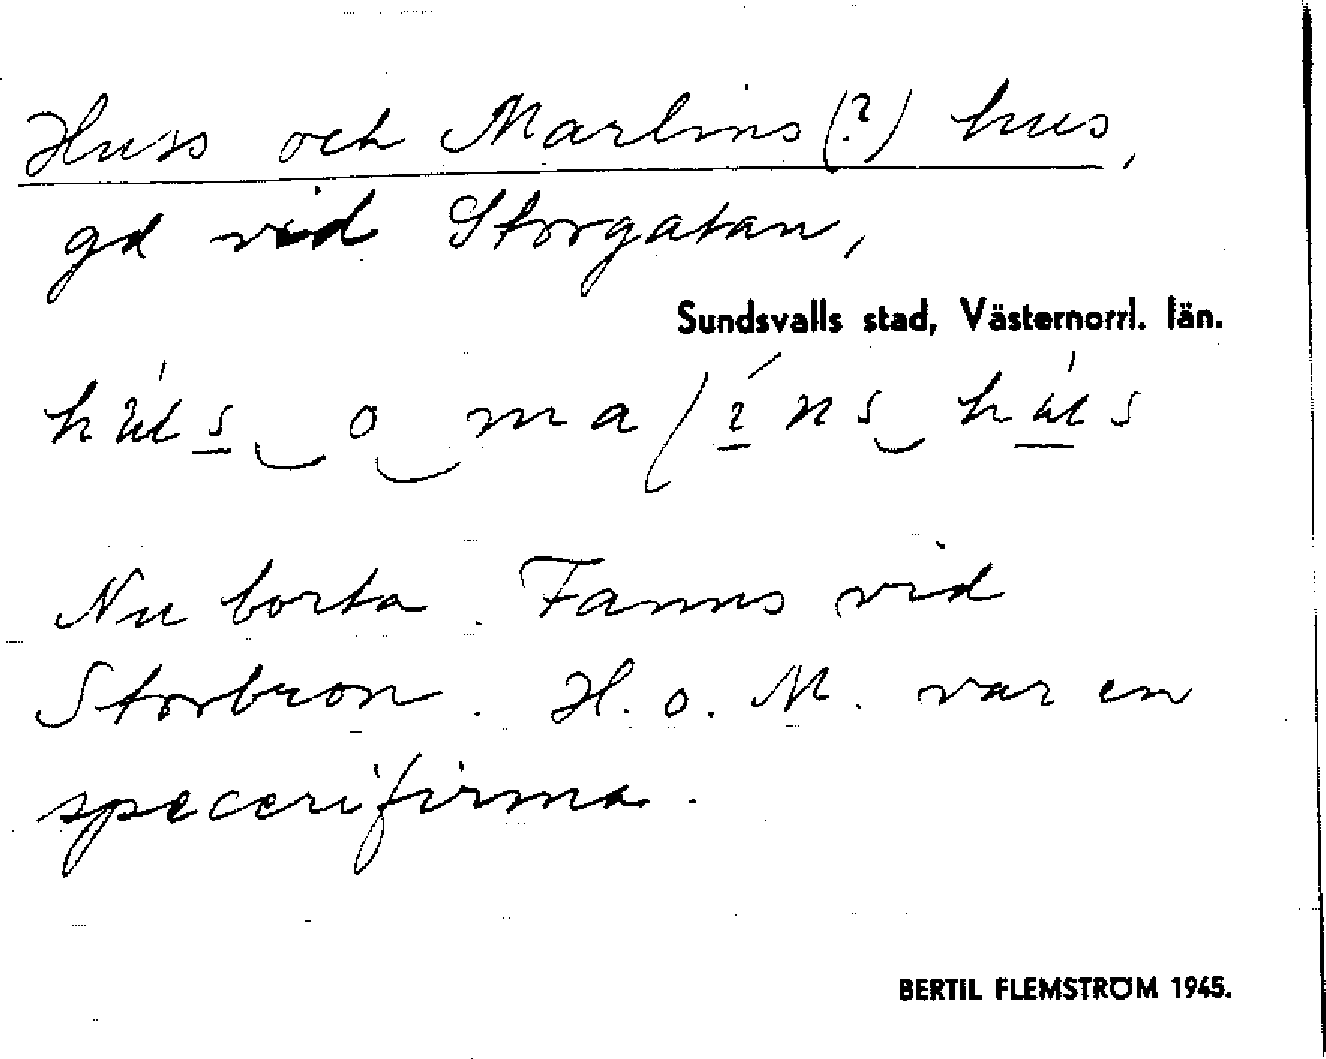 Huss och Marlins (?) hus,
gd vid Storgatan,
Sundsvalls stad, Västernorrl. län.
Nu borta. Fanns vid
Storbron. H. o. M. var en
specerifirma.
BERTIL FLEMSTRÖM 1945.